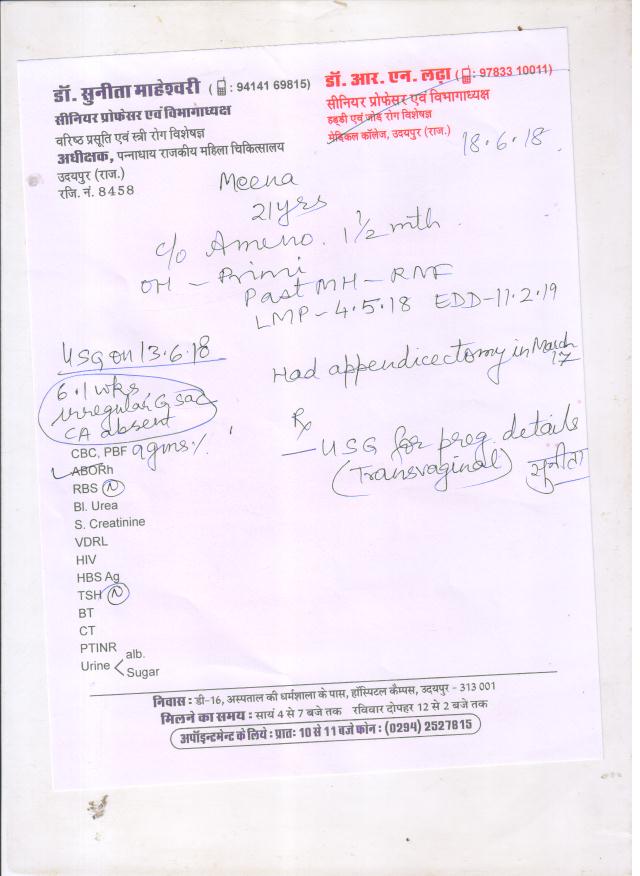 डॉ. सुनीता माहेश्वरी ( : 94141 69815)
सीनियर प्रोफेसर एवं विभागाध्यक्ष
वरिष्ठ प्रसूति एवं स्त्री रोग विशेषज्ञ
अधीक्षक, पन्नाधाय राजकीय महिला चिकित्सालय
उदयपुर (राज.)
रजि. नं. 8458
डॉ. आर. एन. लढ़ा ( : 97833 10011)
सीनियर प्रोफेसर एवं विभागाध्यक्ष
हड्डी एवं जोड़ रोग विशेषज्ञ
मेडिकल कॉलेज, उदयपुर (राज.)
18.6.18
Meena
21yrs
c/o Ameno. 1½ mth
OH - Primi
Past MH - RNF
LMP - 4.5.18 EDD - 11.2.19
Had appendicectomy in March
17
USG on 13.6.18
6.1 wks
irregular G sac
CA absent
Rx
- USG for preg. details
(Transvaginal) सुनीता
CBC, PBF 9gms%
ABORh
RBS N
Bl. Urea
S. Creatinine
VDRL
HIV
HBS Ag
TSH N
BT
CT
PTINR
Urine < alb.
Sugar
निवास : डी-16, अस्पताल की धर्मशाला के पास, हॉस्पिटल कैम्पस, उदयपुर - 313 001
मिलने का समय : सायं 4 से 7 बजे तक रविवार दोपहर 12 से 2 बजे तक
अपॉइन्टमेन्ट के लिये : प्रातः 10 से 11 बजे फोन : (0294) 2527815